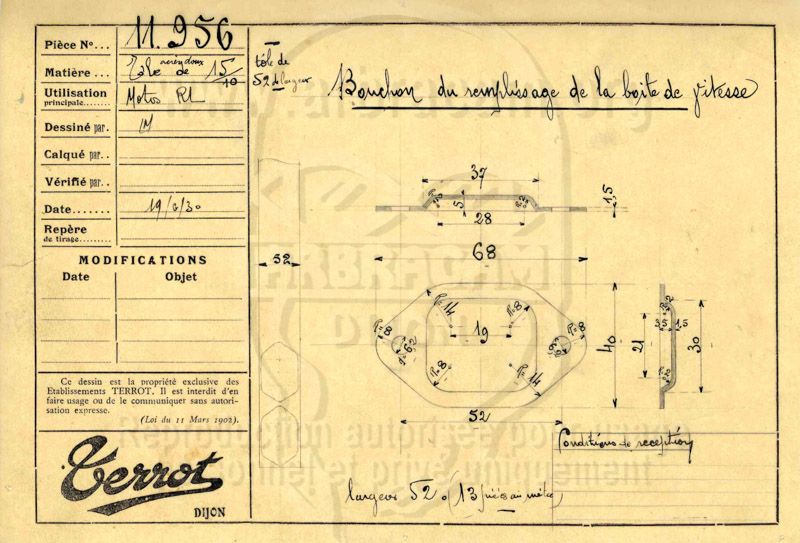 Pièce N° ... 11.956
Matière ... Tôle acier doux de 15/10
Utilisation principale... Motos RL
Dessiné par.
Calqué par..
Vérifié par..
Date ...... 19/2/30
Repère de tirage........
MODIFICATIONS
Date Objet
Ce dessin est la propriété exclusive des
Etablissements TERROT. Il est interdit d'en
faire usage ou de le communiquer sans autori-
sation expresse.
(Loi du 11 Mars 1902).
Terrot
DIJON
tôle de
52 de largeur
Bouchon du remplissage de la boite de vitesse
37
5
1,5
28
68
52
R=14
R=8
19
R=8
R=8
R=8
R=14
40
3,5
1,5
21
30
52
Conditions de reception
largeur 52 (13 pièces au mètre)
ARBRACAM
DIJON
Reproduction autorisée pour usage
personnel et privé uniquement